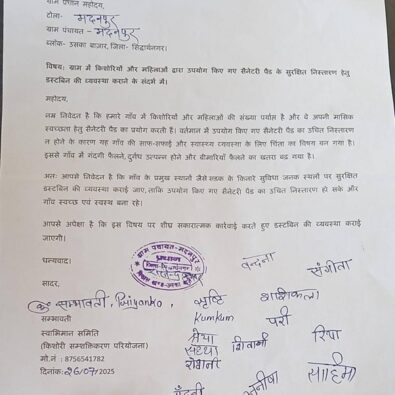 ग्राम प्रधान महोदय,
टोला- मदनपुर
ग्राम पंचायत - मदनपुर
ब्लॉक- उसका बाजार, जिला- सिद्धार्थनगर।
विषय: ग्राम में किशोरियों और महिलाओं द्वारा उपयोग किए गए सैनेटरी पैड के सुरक्षित निस्तारण हेतु
डस्टबिन की व्यवस्था कराने के संदर्भ में।
महोदय,
नम्र निवेदन है कि हमारे गाँव में किशोरियों और महिलाओं की संख्या पर्याप्त है और वे अपनी मासिक
स्वच्छता हेतु सैनेटरी पैड का प्रयोग करती हैं। वर्तमान में उपयोग किए गए सैनेटरी पैड का उचित निस्तारण
न होने के कारण यह गाँव की साफ-सफाई और स्वास्थ्य व्यवस्था के लिए चिंता का विषय बन गया है।
इससे गाँव में गंदगी फैलने, दुर्गंध उत्पन्न होने और बीमारियाँ फैलने का खतरा बढ़ गया है।
अतः आपसे निवेदन है कि गाँव के प्रमुख स्थानों जैसे सड़क के किनारे सुविधा जनक स्थलों पर सुरक्षित
डस्टबिन की व्यवस्था कराई जाए, ताकि उपयोग किए गए सैनेटरी पैड का उचित निस्तारण हो सके और
गाँव स्वच्छ एवं स्वस्थ बना रहे।
आपसे अपेक्षा है कि इस विषय पर शीघ्र सकारात्मक कार्रवाई करते हुए डस्टबिन की व्यवस्था कराई
जाएगी।
धन्यवाद।
ग्राम पंचायत-मदनपुर
प्रधान
वन्दना
संगीता
सादर,
सम्भावती, Priyanka,
सृष्टि
शशिकला
सम्भावती
Kumkum
परी
स्वाभिमान समिति
श्रेया
शिवानी
रिया
(किशोरी सशक्तिकरण परियोजना)
मो.नं : 8756541782
रोशनी
दिनांक:26/07/2025
चाँदनी
मनीषा